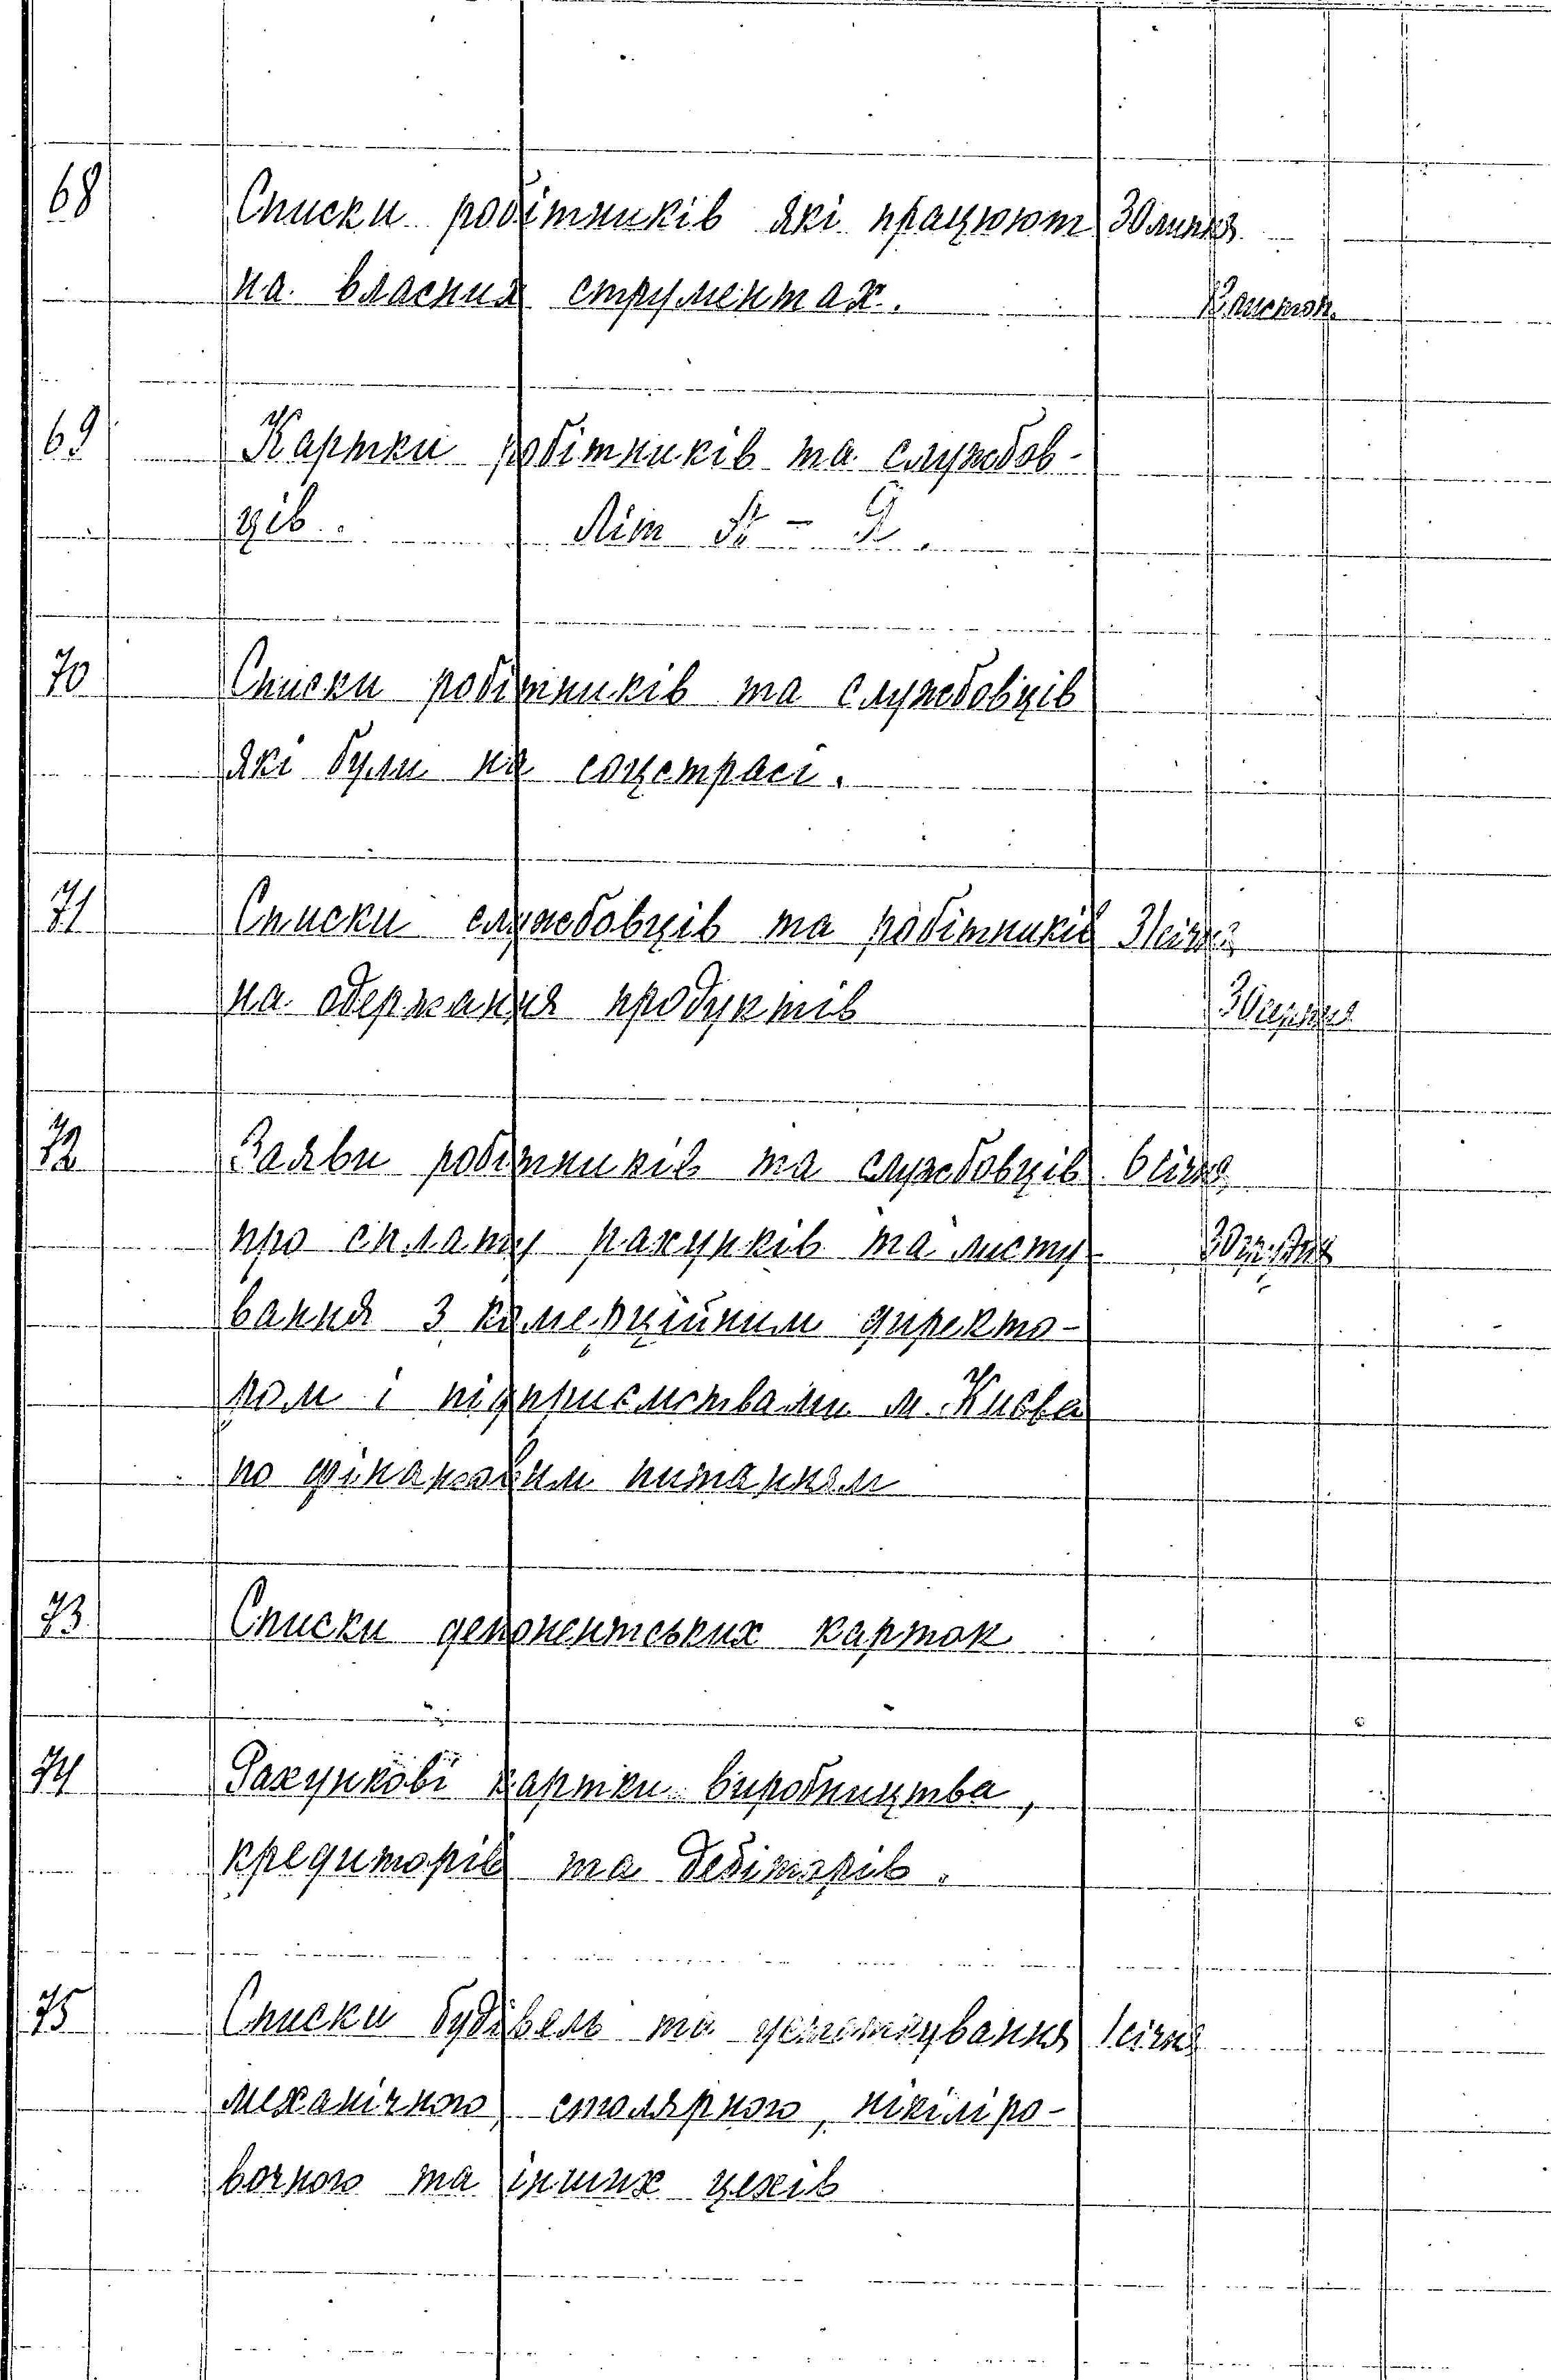 68 Списки робітників які працюют 30 липня
на власних струментах. листоп.
69 Картки робітників та службов-
ців. Літ А - Я
70 Списки робітників та службовців
які були на соцстрасі.
71 Списки службовців та робітників 3 січня
на одержання продуктів 30 серпня
72 Заяви робітників та службовців 6 січня
про сплату рахунків та листу
вання з комерційним директо-
ром і підприємствами м. Києва
по фінансовим питанням
73 Списки депонентських карток
74 Рахункові картки виробництва,
кредиторів та дебіторів.
75 Списки будівель та устаткування 1 січня
механічного, столярного, нікіліро-
вочного та інших цехів